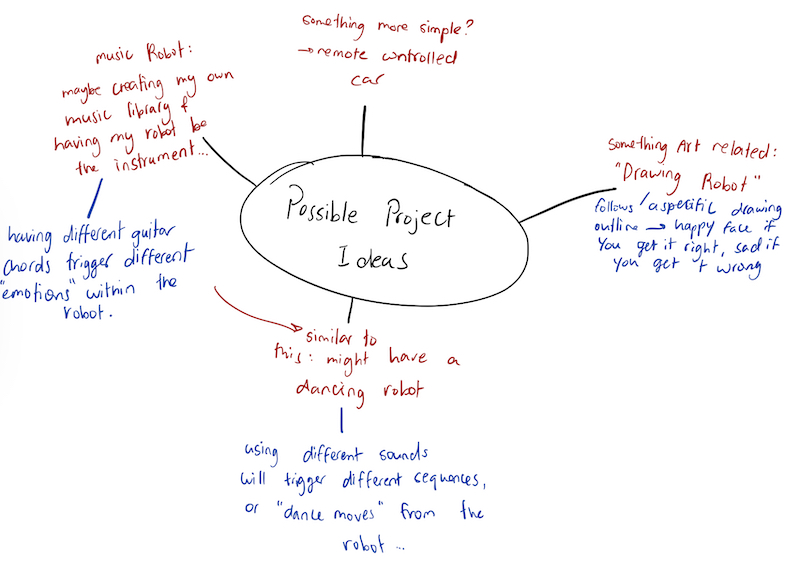 Possible Project
Ideas
something more simple?
→ remote controlled
car
music Robot:
maybe creating my own
music library &
having my robot be
the instrument...
having different guitar
chords trigger different
"emotions" within the
robot.
something Art related:
"Drawing Robot"
follows / a specific drawing
outline → happy face if
you get it right, sad if
you get it wrong
similar to
this: might have a
dancing robot
using different sounds
will trigger different sequences,
or "dance moves" from the
robot...